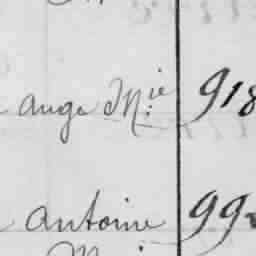 ange M.ie 918
antoine 99